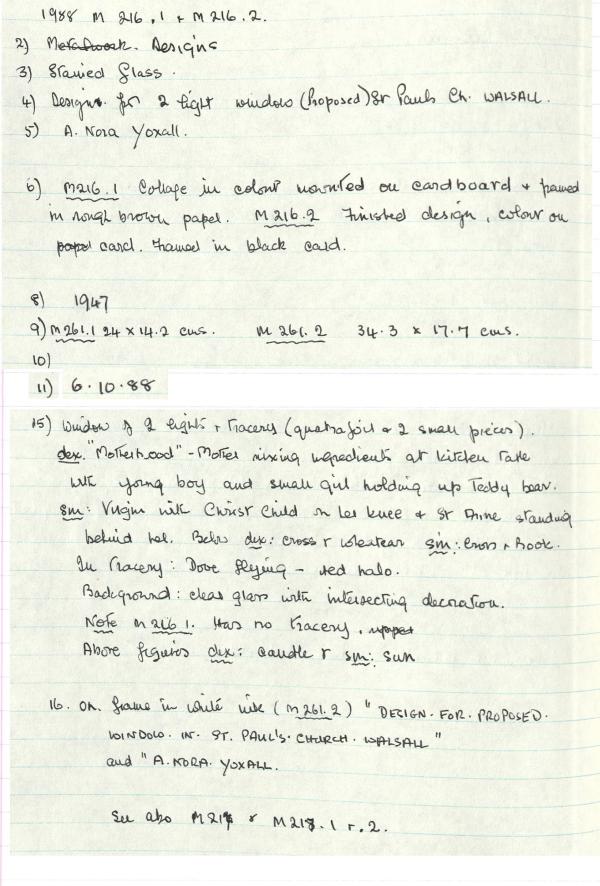 1988 M 216.1 + M 216.2.
2) Metalwork. Designs
3) Stained Glass.
4) Designs for 2 light window (Proposed) St Pauls Ch. WALSALL.
5) A. Nora Yoxall.
6) M216.1 Collage in colour mounted on cardboard + framed
in rough brown paper. M216.2 Finished design, colour on
paper card. Framed in black card.
8) 1947
9) M261.1 24 x 14.2 cms. M 261.2 34.3 x 17.7 cms.
10)
11) 6.10.88
15) Window of 2 lights + Tracery (quatrefoil & 2 small pieces).
dex. "Motherhood" - Mother mixing ingredients at kitchen table
with young boy and small girl holding up Teddy bear.
sm: Virgin with Christ Child on her knee & St Anne standing
behind her. Below dex: cross + sm: Cross + Book.
In Tracery: Dove flying - red halo.
Background: clear glass with intersecting decoration.
Note M 216 1. Has no tracery.
Above figures dex: candle + sm: sun
16. On frame in white ink (M261.2) "DESIGN.FOR.PROPOSED.
WINDOW.IN.ST.PAUL'S.CHURCH.WALSALL"
and "A.NORA.YOXALL.
See also M217 & M218.1 + .2.